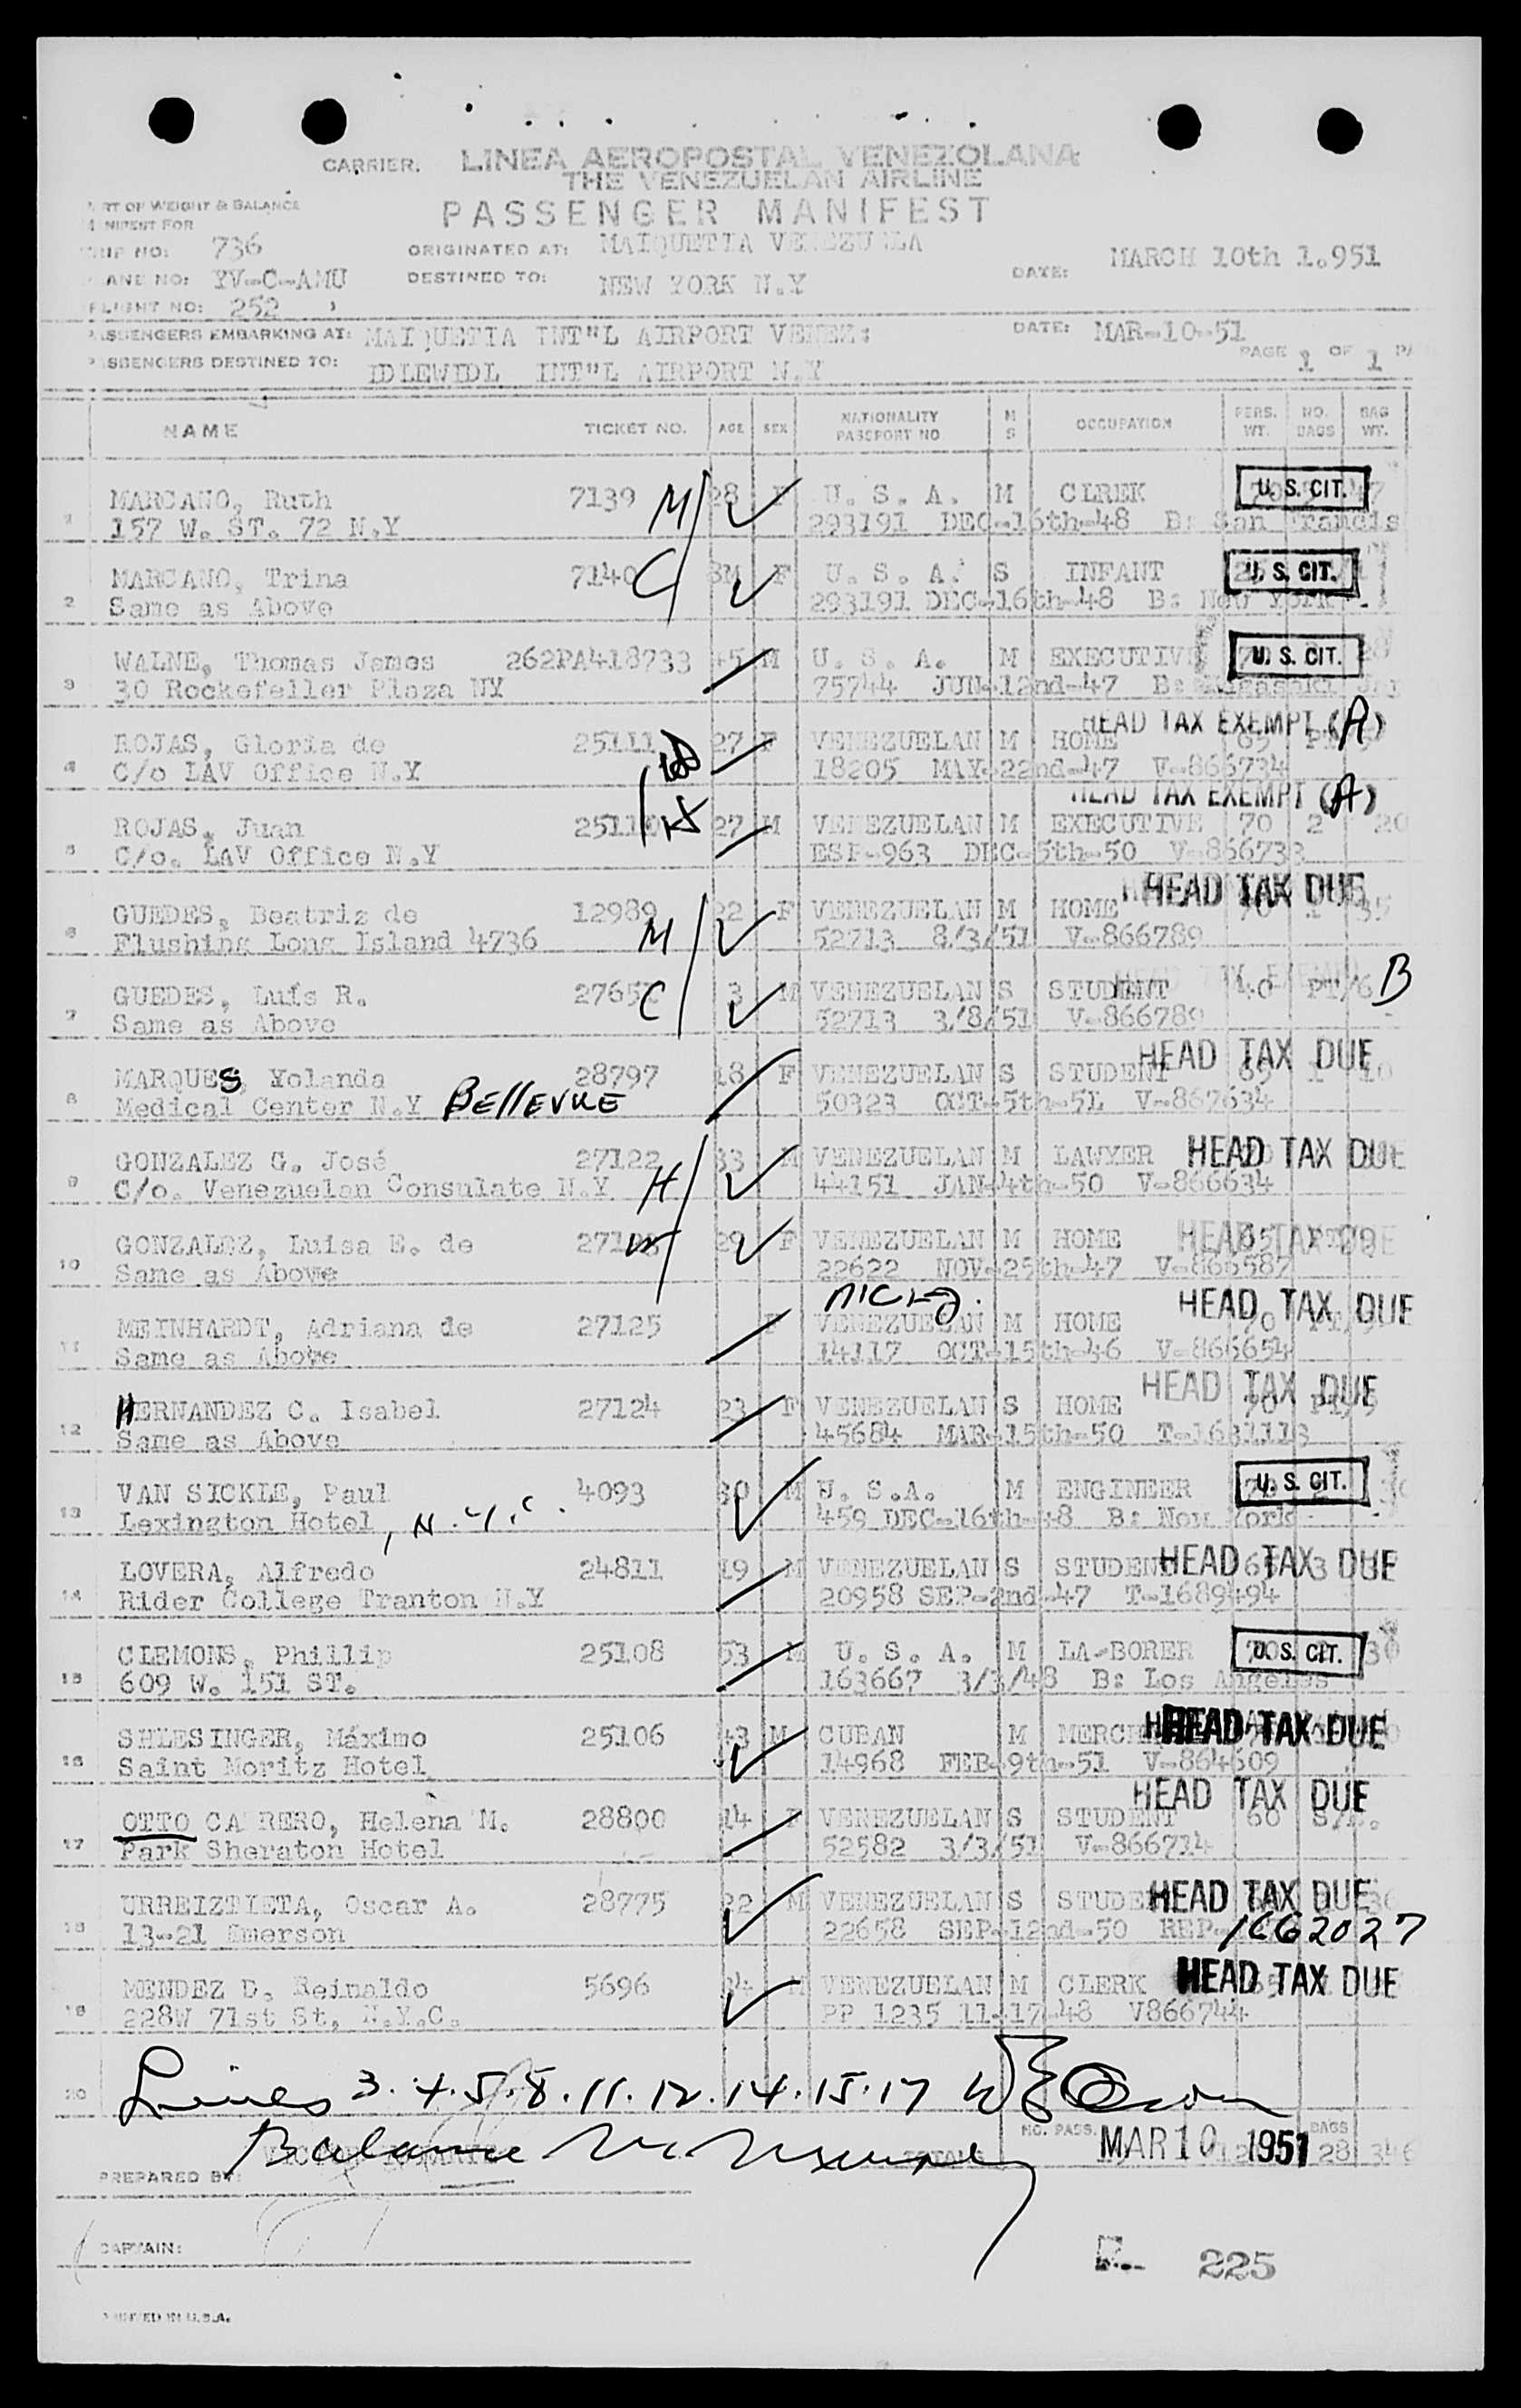 CARRIER. LINEA AEROPOSTAL VENEZOLANA
THE VENEZUELAN AIRLINE
PASSENGER MANIFEST
RT OF WEIGHT & BALANCE
NIFEST FOR
NO: 736 ORIGINATED AT: MAIQUETIA VENEZUELA MARCH 10th 1.951
ANE NO: YV-C-AMU DESTINED TO: NEW YORK N.Y DATE:
FLIGHT NO: 252
PASSENGERS EMBARKING AT: MAIQUETIA INT"L AIRPORT VENEZ: DATE: MAR-10-51
PAGE 1 OF 1
PASSENGERS DESTINED TO: IDLEWIDL INT"L AIRPORT N.Y
NAME TICKET NO. AGE SEX NATIONALITY PASSPORT NO M S OCCUPATION PERS. WT. NO. BAGS BAG WT.
MARCANO, Ruth 7139 M 28 F U. S. A. M CLREK U. S. CIT.
1 157 W. ST. 72 N.Y 293191 DEC-16th-48 B: San Francis
MARCANO, Trina 7140 C 8M F U. S. A. S INFANT U. S. CIT.
2 Same as Above 293191 DEC-16th-48 B: New York
WALNE, Thomas James 262PA418733 45 M U. S. A. M EXECUTIVE U. S. CIT.
3 30 Rockefeller Plaza NY 75744 JUN-12nd-47 B:
HEAD TAX EXEMPT (A)
ROJAS, Gloria de 25111 27 F VENEZUELAN M HOME 65
4 C/o LAV Office N.Y 18205 MAY-22nd-47 V-866734
HEAD TAX EXEMPT (A)
ROJAS, Juan 25110 27 M VENEZUELAN M EXECUTIVE 70 2 20
5 C/o. LAV Office N.Y ESP-963 DEC-5th-50 V-866733
HEAD TAX DUE
GUEDES, Beatriz de 12989 22 F VENEZUELAN M HOME 70 1 35
6 Flushing Long Island 4736 M 52713 8/3/51 V-866789
GUEDES, Luís R. 2765 C 3 M VENEZUELAN S STUDENT 40 PT/6 B
7 Same as Above 52713 3/8/51 V-866789
HEAD TAX DUE
MARQUES, Yolanda 28797 18 F VENEZUELAN S STUDENT 65 1 10
8 Medical Center N.Y BELLEVUE 50323 OCT-5th-5L V-867634
GONZALEZ G. José 27122 33 M VENEZUELAN M LAWYER HEAD TAX DUE
9 C/o. Venezuelan Consulate N.Y H 44151 JAN-4th-50 V-866634
GONZALEZ, Luisa E. de W 29 F VENEZUELAN M HOME 65 HEAD TAX DUE
10 Same as Above 22622 NOV-25th-47 V-866587
HEAD TAX DUE
MEINHARDT, Adriana de 27125 F VENEZUELAN M HOME 70
11 Same as Above 14117 OCT-15th-46 V-866654
HEAD TAX DUE
HERNANDEZ C. Isabel 27124 23 F VENEZUELAN S HOME 70
12 Same as Above 45684 MAR-15th-50 T-1681113
VAN SICKLE, Paul 4093 30 M U. S.A. M ENGINEER U. S. CIT.
13 Lexington Hotel, N.Y.C. 459 DEC-16th-48 B: New York
LOVERA, Alfredo 24811 19 M VENEZUELAN S STUDENT HEAD TAX DUE
14 Rider College Tranton N.Y 20958 SEP-2nd-47 T-1689494
CLEMONS, Phillip 25108 53 M U. S. A. M LA-BORER U. S. CIT. 30
15 609 W. 151 ST. 163667 3/3/48 B: Los Angeles
SHLESINGER, Máximo 25106 43 M CUBAN M MERCH HEAD TAX DUE
16 Saint Moritz Hotel 14968 FEB-9th-51 V-864609
HEAD TAX DUE
OTTO CA RERO, Helena M. 28800 14 F VENEZUELAN S STUDENT 60 S/B.
17 Park Sheraton Hotel 52582 3/3/51 V-866714
URREIZTIETA, Oscar A. 28775 22 M VENEZUELAN S STUDE HEAD TAX DUE
18 13-21 Emerson 22658 SEP-12nd-50 REP- 1662027
MENDEZ D, Reinaldo 5696 34 M VENEZUELAN M CLERK HEAD TAX DUE
19 228W 71st St, N.Y.C. PP 1235 11-17-48 V866744
20 Lines 3.4.5.8.11.12.14.15.17
Balance
NO. PASS. MAR 10 1951 BAGS 28 346
TOTALS
PREPARED BY:
CAPTAIN:
225
PRINTED IN U.S.A.